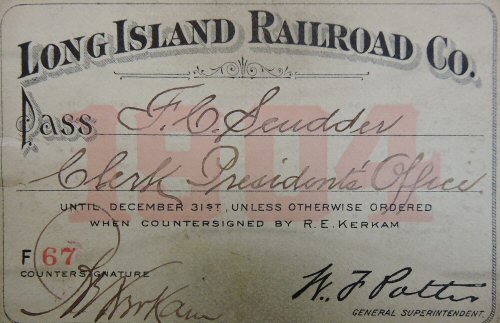 LONG ISLAND RAILROAD CO.
1904
Pass F. C. Scudder
Clerk Presidents' Office
UNTIL DECEMBER 31ST, UNLESS OTHERWISE ORDERED
WHEN COUNTERSIGNED BY R.E. KERKAM
F 67
COUNTERSIGNATURE
R E Kerkam
W. F. Potter
GENERAL SUPERINTENDENT.